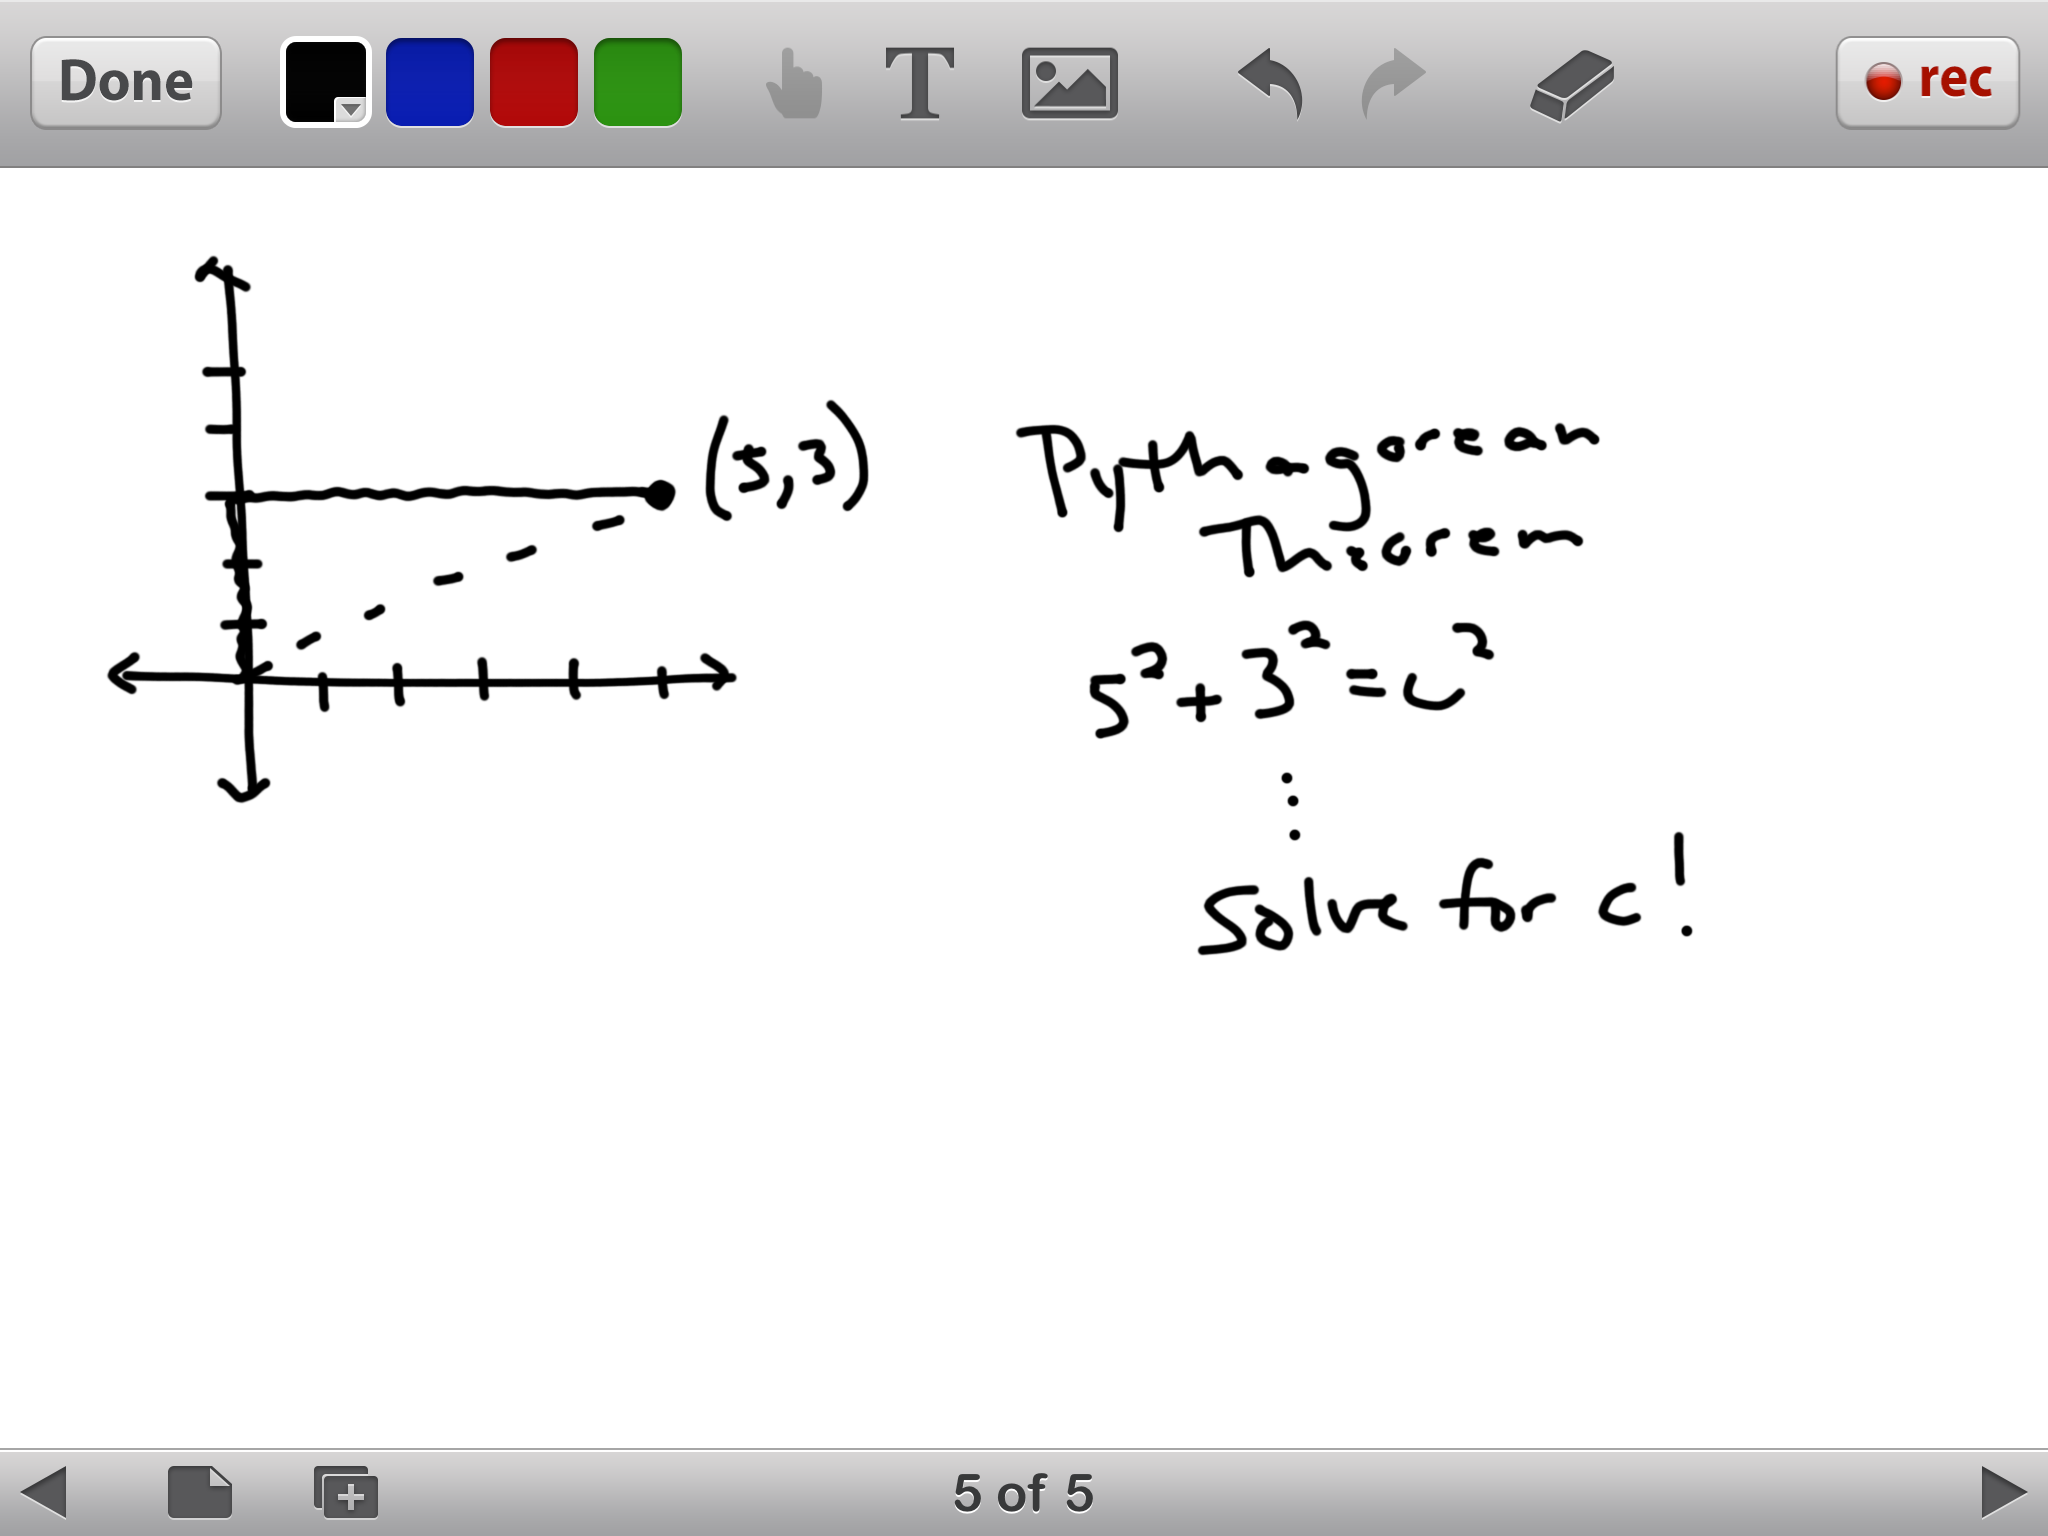 Done
T
rec
(5,3)
Pythagorean
Theorem
5² + 3² = c²
⋮
Solve for c!
5 of 5